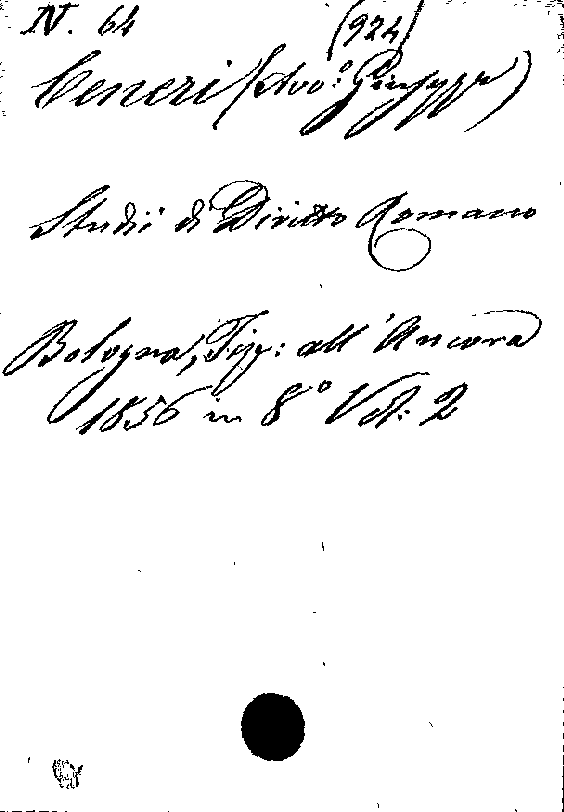 N. 64 (924)
Ceneri (Avo:° Giuseppe)
Studii di Diritto Romano
Bologna, Tip: all'Ancora
1856 in 8° Vol: 2